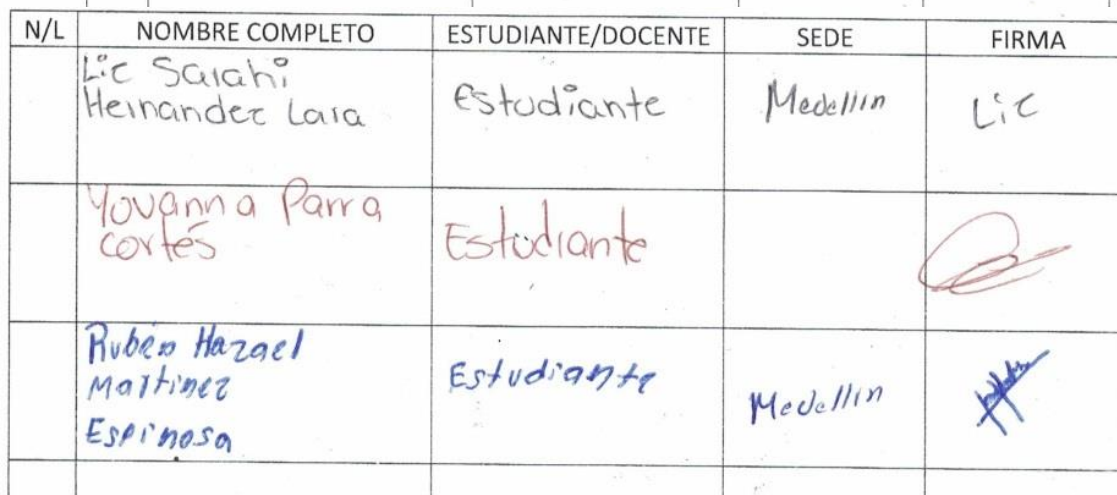 N/L NOMBRE COMPLETO ESTUDIANTE/DOCENTE SEDE FIRMA
Lic Sarahi
Hernandez Lara Estudiante Medellin Lic
Yovanna Parra
cortés Estudiante
Rubén Hazael
Martinez Estudiante Medellin
Espinosa